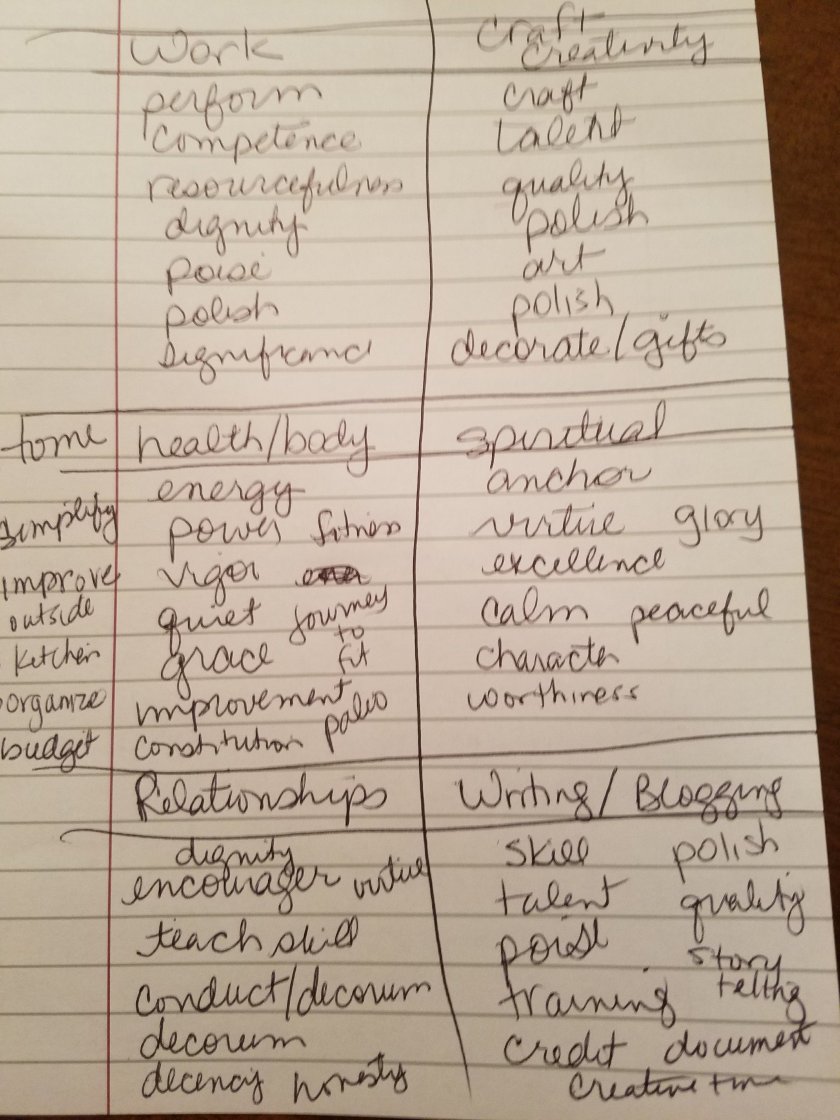 Work
perform
competence
resourcefulness
dignity
poise
polish
significance
Craft
Creativity
craft
talent
quality
polish
art
polish
decorate/gifts
home
simplify
improve
outside
kitchen
organize
budget
health/body
energy
power fitness
vigor
quiet journey
grace to
fit
improvement
constitution paleo
spiritual
anchor
virtue glory
excellence
calm peaceful
character
worthiness
Relationships
dignity
encourager virtue
teach skill
conduct/decorum
decorum
decency honesty
Writing/Blogging
skill polish
talent quality
poise story
training telling
credit document
creative time